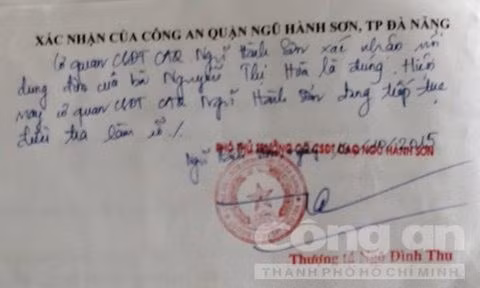 XÁC NHẬN CỦA CÔNG AN QUẬN NGŨ HÀNH SƠN, TP ĐÀ NẴNG
Cơ quan CSĐT CAQ Ngũ Hành Sơn xác nhận nội
dung đơn của bà Nguyễn Thị Hoa là đúng. Hiện
nay cơ quan CSĐT CAQ Ngũ Hành Sơn đang tiếp tục
điều tra làm rõ /.
Ngũ Hành Sơn, ngày 2015
PHÓ THỦ TRƯỞNG CQ CSĐT CAQ NGŨ HÀNH SƠN
Công an
THÀNH PHỐ HỒ CHÍ MINH
Thượng tá Ngô Đình Thu